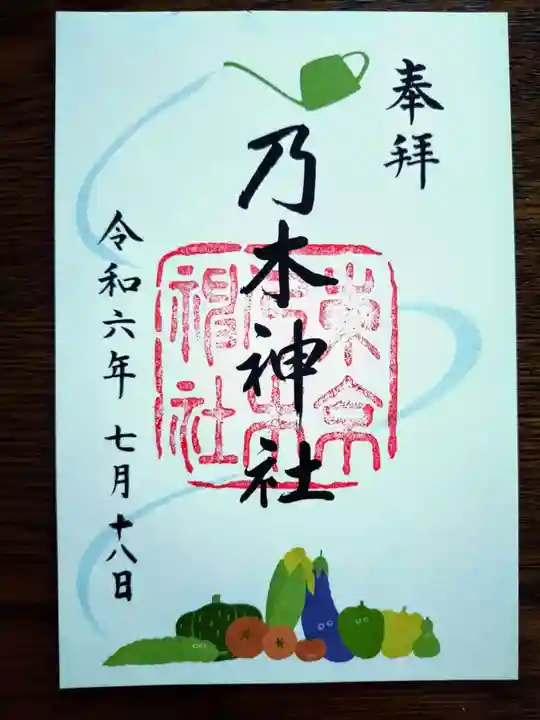 奉拝
乃木神社
東京
乃木
神社
令和六年 七月十八日